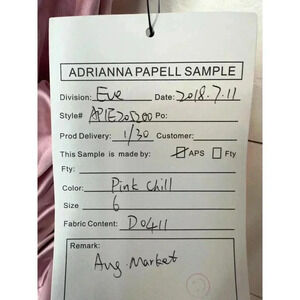 ADRIANNA PAPELL SAMPLE
Division: Eve Date: 2018.7.11
Style# AP1E205200 Po:
Prod Delivery: 1/30 Customer:
This Sample is made by: ☑ APS ☐ Fty
Fty:
Color: Pink Chill
Size 6
Fabric Content: D0411
Remark:
Aug Market